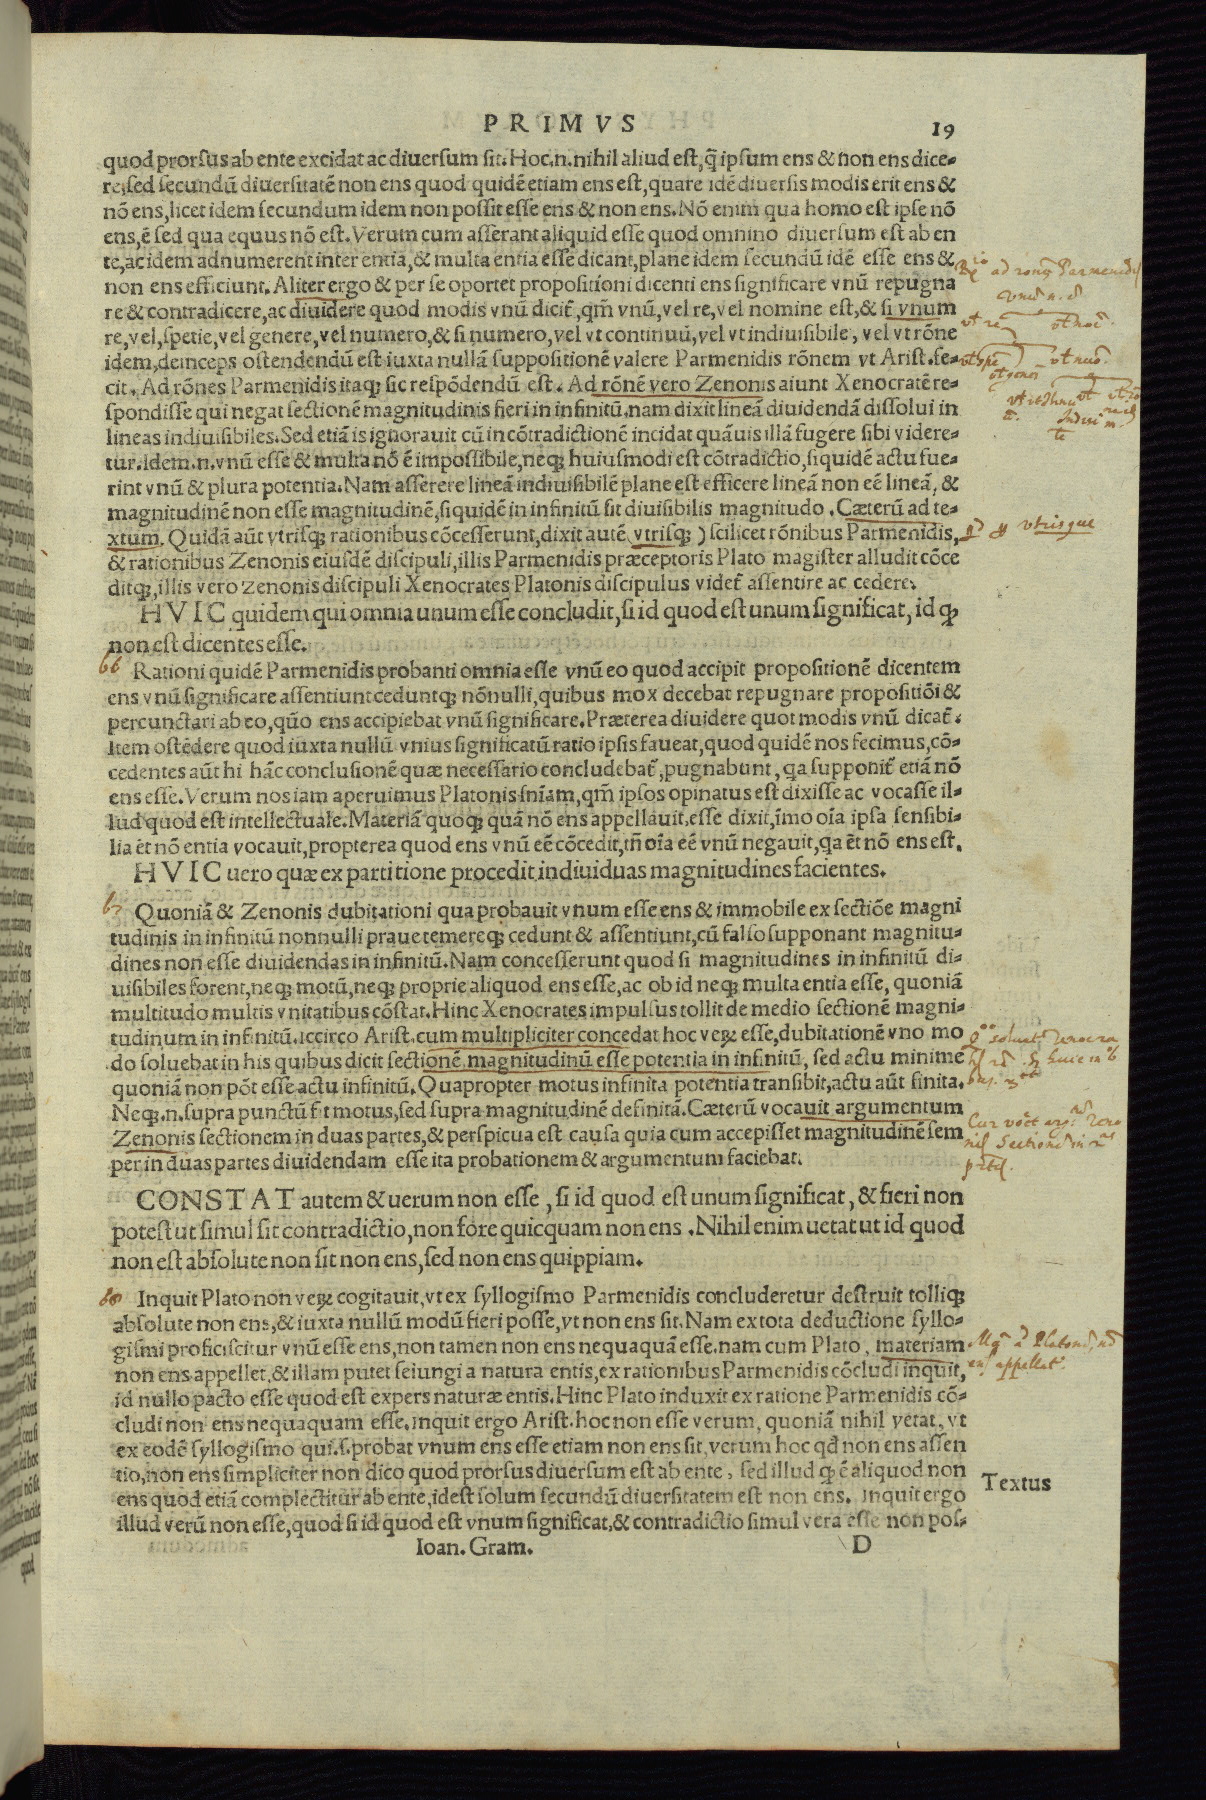 PRIMVS 19
quod prorsus ab ente excidat ac diuersum sit. Hoc.n.nihil aliud est, q̃ ipsum ens & non ens dice-
re, sed secundũ diuersitatẽ non ens quod quidẽ etiam ens est, quare idẽ diuersis modis erit ens &
nõ ens, licet idem secundum idem non possit esse ens & non ens. Nõ enim qua homo est ipse nõ
ens, ẽ sed qua equus nõ est. Verum cum asserant aliquid esse quod omnino diuersum est ab en
te, ac idem adnumerent inter entia, & multa entia esse dicant, plane idem secundũ idẽ esse ens &
non ens efficiunt. Aliter ergo & per se oportet propositioni dicenti ens significare vnũ repugna
re & contradicere, ac diuidere quod modis vnũ dicit̃, qm̃ vnũ, vel re, vel nomine est, & si vnum
re, vel, spetie, vel genere, vel numero, & si numero, vel vt continuũ, vel vt indiuisibile, vel vt rõne
idem, deinceps ostendendũ est iuxta nullã suppositionẽ valere Parmenidis rõnem vt Arist. fe-
cit. Ad rõnes Parmenidis itaq; sic respõdendũ est. Ad rõnẽ vero Zenonis aiunt Xenocratẽ re-
spondisse qui negat sectionẽ magnitudinis fieri in infinitũ, nam dixit lineã diuidendã dissolui in
lineas indiuisibiles. Sed etiã is ignorauit cũ in cõtradictionẽ incidat quãuis illã fugere sibi videre-
tur. Idem.n.vnũ esse & multa nõ ẽ impossibile, neq; huiusmodi est cõtradictio, si quidẽ actu fue-
rint vnũ & plura potentia. Nam asserere lineã indiuisibilẽ plane est efficere lineã non eẽ lineã, &
magnitudinẽ non esse magnitudinẽ, si quidẽ in infinitũ sit diuisibilis magnitudo. Cæterũ ad te-
xtum. Quidã aũt vtrisq; rationibus cõcesserunt, dixit autẽ (vtrisq;) scilicet rõnibus Parmenidis,
& rationibus Zenonis eiusdẽ discipuli, illis Parmenidis præceptoris Plato magister alludit cõce
ditq;, illis vero Zenonis discipuli Xenocrates Platonis discipulus videt̃ assentire ac cedere.
HVIC quidem qui omnia unum esse concludit, si id quod est unum significat, id q;
non est dicentes esse.
66 Rationi quidẽ Parmenidis probanti omnia esse vnũ eo quod accipit propositionẽ dicentem
ens vnũ significare assentiunt ceduntq; nõnulli, quibus mox decebat repugnare propositiõi &
percunctari ab eo, quõ ens accipiebat vnũ significare. Præterea diuidere quot modis vnũ dicat̃.
Item ostẽdere quod iuxta nullũ vnius significatũ ratio ipsis faueat, quod quidẽ nos fecimus, cõ-
cedentes aũt hi hãc conclusionẽ quæ necessario concludebat̃, pugnabunt, qa supponit̃ etiã nõ
ens esse. Verum nos iam aperuimus Platonis sniam, qm̃ ipsos opinatus est dixisse ac vocasse il-
lud quod est intellectuale. Materiã quoq; quã nõ ens appellauit, esse dixit, imo oĩa ipsa sensibi-
lia ẽt nõ entia vocauit, propterea quod ens vnũ eẽ cõcedit, tñ oĩa eẽ vnũ negauit, qa ẽt nõ ens est.
HVIC uero quæ ex partitione procedit indiuiduas magnitudines facientes.
67 Quoniã & Zenonis dubitationi qua probauit vnum esse ens & immobile ex sectiõe magni
tudinis in infinitũ nonnulli praue temereq; cedunt & assentiunt, cũ falso supponant magnitu-
dines non esse diuidendas in infinitũ. Nam concesserunt quod si magnitudines in infinitũ di-
uisibiles forent, neq; motũ, neq; proprie aliquod ens esse, ac ob id neq; multa entia esse, quoniã
multitudo multis vnitatibus cõstat. Hinc Xenocrates impulsus tollit de medio sectionẽ magni-
tudinum in infinitũ. Iccirco Arist. cum multipliciter concedat hoc veꝝ esse, dubitationẽ vno mo
do soluebat in his quibus dicit sectionẽ magnitudinũ esse potentia in infinitũ, sed actu minime
quoniã non põt esse actu infinitũ. Quapropter motus infinita potentia transibit, actu aũt finita.
Neq;.n.supra punctũ fit motus, sed supra magnitudinẽ definitã. Cæterũ vocauit argumentum
Zenonis sectionem in duas partes, & perspicua est causa quia cum accepisset magnitudinẽ sem
per in duas partes diuidendam esse ita probationem & argumentum faciebat.
CONSTAT autem & uerum non esse, si id quod est unum significat, & fieri non
potest ut simul sit contradictio, non fore quicquam non ens. Nihil enim uetat ut id quod
non est absolute non sit non ens, sed non ens quippiam.
68 Inquit Plato non veꝝ cogitauit, vt ex syllogismo Parmenidis concluderetur destruit tolliq;
absolute non ens, & iuxta nullũ modũ fieri posse, vt non ens sit. Nam ex tota deductione syllo-
gismi proficiscitur vnũ esse ens, non tamen non ens nequaquã esse. nam cum Plato, materiam
non ens appellet, & illam putet seiungi a natura entis, ex rationibus Parmenidis cõcludi inquit,
id nullo pacto esse quod est expers naturæ entis. Hinc Plato induxit ex ratione Parmenidis cõ-
cludi non ens nequaquam esse. Inquit ergo Arist. hoc non esse verum, quoniã nihil vetat, vt
ex eodẽ syllogismo qui.s.probat vnum ens esse etiam non ens sit, verum hoc qd̃ non ens assen
tio, non ens simpliciter non dico quod prorsus diuersum est ab ente, sed illud q; ẽ aliquod non
ens quod etiã complectitur ab ente, idest solum secundũ diuersitatem est non ens. Inquit ergo
Textus
illud verũ non esse, quod si id quod est vnum significat, & contradictio simul vera esse non pos-
Ioan. Gram. D
ad Parmenidis
vtrisque